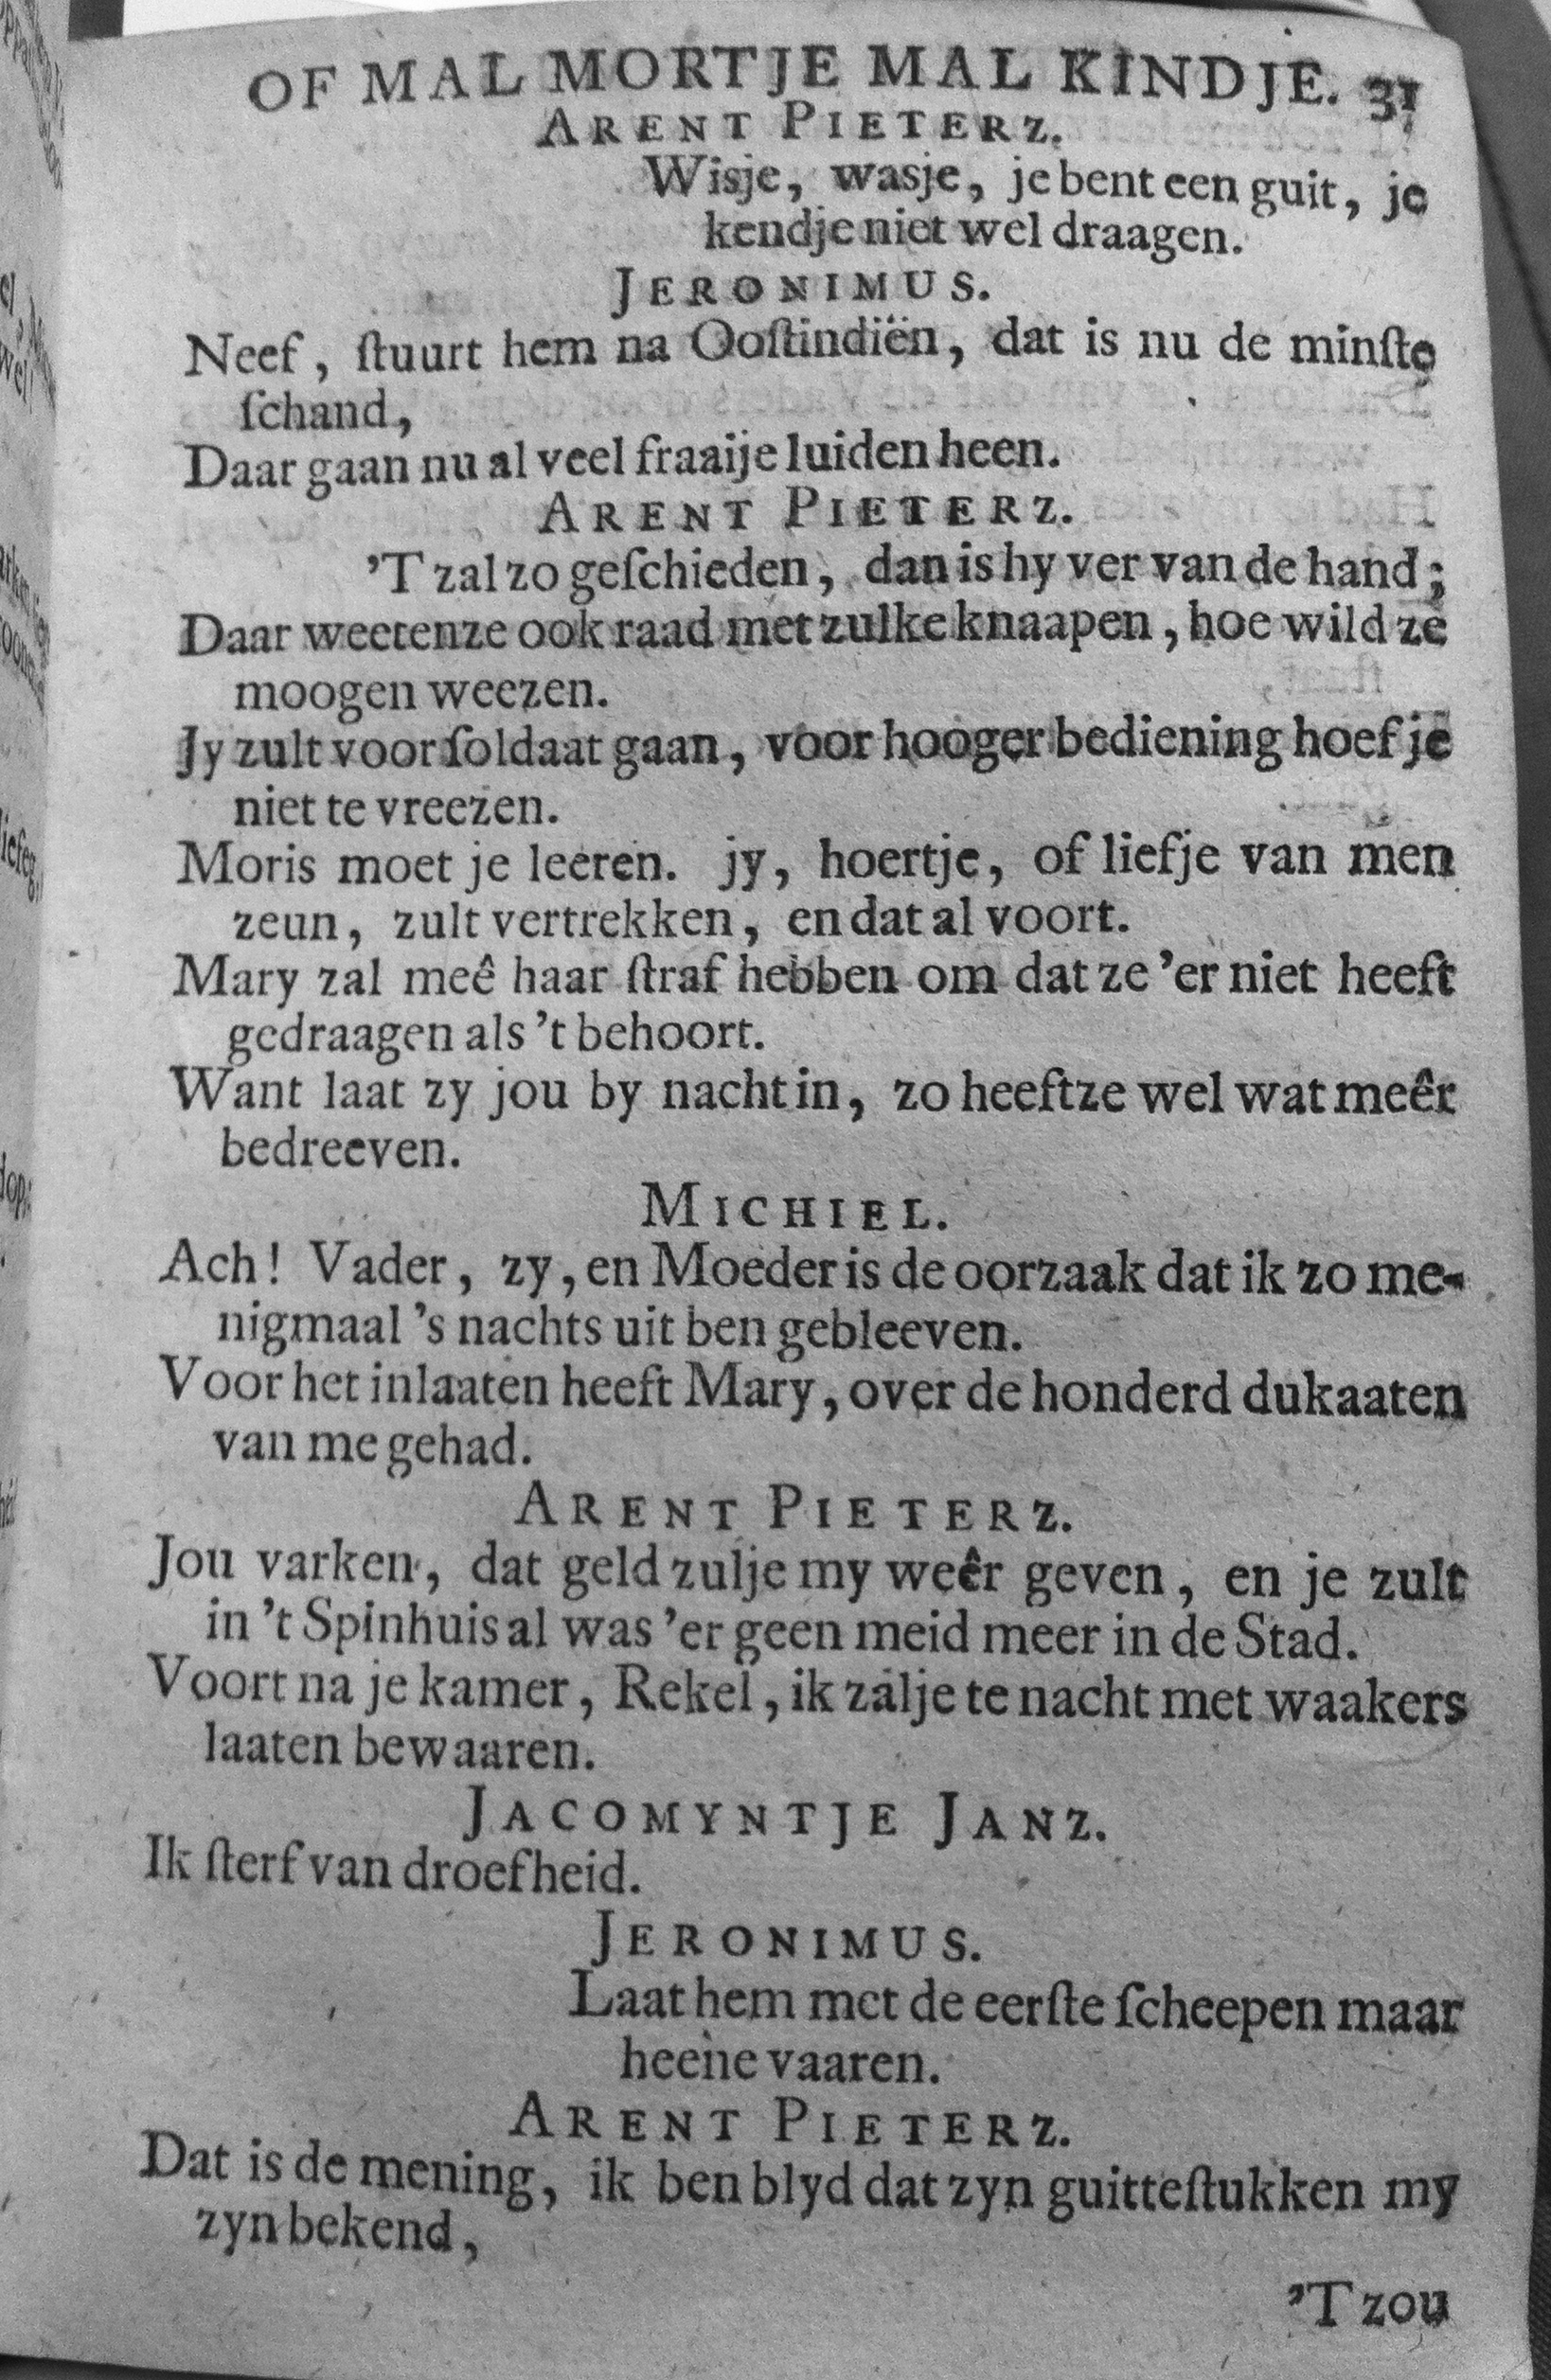 OF MAL MORTJE MAL KINDJE. 31
ARENT PIETERZ.
Wisje, wasje, je bent een guit, je
kendje niet wel draagen.
JERONIMUS.
Neef, ſtuurt hem na Ooſtindiën, dat is nu de minſte
ſchand,
Daar gaan nu al veel fraaije luiden heen.
ARENT PIETERZ.
'T zal zo geſchieden, dan is hy ver van de hand;
Daar weetenze ook raad met zulke knaapen, hoe wild ze
moogen weezen.
Jy zult voor ſoldaat gaan, voor hooger bediening hoef je
niet te vreezen.
Moris moet je leeren. jy, hoertje, of liefje van men
zeun, zult vertrekken, en dat al voort.
Mary zal meê haar ſtraf hebben om dat ze 'er niet heeft
gedraagen als 't behoort.
Want laat zy jou by nacht in, zo heeftze wel wat meêr
bedreeven.
MICHIEL.
Ach! Vader, zy, en Moeder is de oorzaak dat ik zo me-
nigmaal 's nachts uit ben gebleeven.
Voor het inlaaten heeft Mary, over de honderd dukaaten
van me gehad.
ARENT PIETERZ.
Jou varken, dat geld zulje my weêr geven, en je zult
in 't Spinhuis al was 'er geen meid meer in de Stad.
Voort na je kamer, Rekel, ik zalje te nacht met waakers
laaten bewaaren.
JACOMYNTJE JANZ.
Ik ſterf van droefheid.
JERONIMUS.
Laat hem met de eerſte ſcheepen maar
heene vaaren.
ARENT PIETERZ.
Dat is de mening, ik ben blyd dat zyn guitteſtukken my
zyn bekend,
'T zou